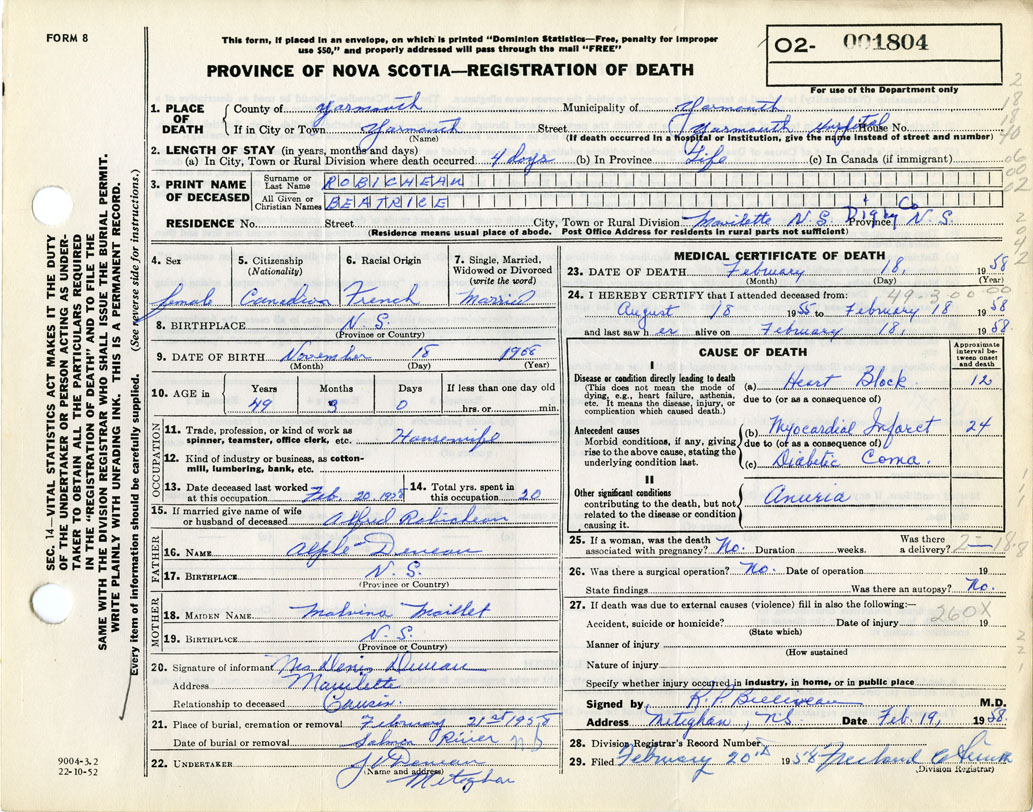 FORM 8
This form, if placed in an envelope, on which is printed "Dominion Statistics—Free, penalty for improper
use $50," and properly addressed will pass through the mail "FREE"
PROVINCE OF NOVA SCOTIA—REGISTRATION OF DEATH
O2- 001804
For use of the Department only
SEC. 14—VITAL STATISTICS ACT MAKES IT THE DUTY
OF THE UNDERTAKER OR PERSON ACTING AS UNDER-
TAKER TO OBTAIN ALL THE PARTICULARS REQUIRED
IN THE "REGISTRATION OF DEATH" AND TO FILE THE
SAME WITH THE DIVISION REGISTRAR WHO SHALL ISSUE THE BURIAL PERMIT.
WRITE PLAINLY WITH UNFADING INK. THIS IS A PERMANENT RECORD.
Every item of information should be carefully supplied. (See reverse side for instructions.)
1. PLACE OF DEATH County of Yarmouth Municipality of Yarmouth
If in City or Town Yarmouth Street Yarmouth Hospital House No.
(Name) (If death occurred in a hospital or institution, give the name instead of street and number)
2. LENGTH OF STAY (in years, months and days)
(a) In City, Town or Rural Division where death occurred 4 days (b) In Province Life (c) In Canada (if immigrant)
3. PRINT NAME OF DECEASED Surname or Last Name ROBICHEAU
All Given or Christian Names BEATRICE
RESIDENCE No. Street City, Town or Rural Division Mavilette N.S. Digby Co Province N.S.
(Residence means usual place of abode. Post Office Address for residents in rural parts not sufficient)
4. Sex 5. Citizenship (Nationality) 6. Racial Origin 7. Single, Married, Widowed or Divorced (write the word)
female Canadian French Married
8. BIRTHPLACE N.S.
(Province or Country)
9. DATE OF BIRTH November 18 1908
(Month) (Day) (Year)
10. AGE in Years Months Days If less than one day old
49 3 0 hrs. or min.
OCCUPATION
11. Trade, profession, or kind of work as
spinner, teamster, office clerk, etc. Housewife
12. Kind of industry or business, as cotton-
mill, lumbering, bank, etc.
13. Date deceased last worked at this occupation Feb. 20 1958 14. Total yrs. spent in this occupation 20
15. If married give name of wife
or husband of deceased Alfred Robicheau
FATHER
16. NAME Alphé Deveau
17. BIRTHPLACE N.S.
(Province or Country)
MOTHER
18. MAIDEN NAME Malvina Maillet
19. BIRTHPLACE N.S.
(Province or Country)
20. Signature of informant Mrs Denis Deveau
Address Mavilette
Relationship to deceased Cousin.
21. Place of burial, cremation or removal February 21st 1958
Date of burial or removal Salmon River
22. UNDERTAKER J V Deveau
(Name and address) Meteghan
9004-3.2
22-10-52
MEDICAL CERTIFICATE OF DEATH
23. DATE OF DEATH February 18, 1958
(Month) (Day) (Year)
24. I HEREBY CERTIFY that I attended deceased from: 49-3 00-00
August 18 1955 to February 18 1958
and last saw h er alive on February 18, 1958.
CAUSE OF DEATH
Approximate interval between onset and death
I
Disease or condition directly leading to death
(This does not mean the mode of
dying, e.g., heart failure, asthenia,
etc. It means the disease, injury, or
complication which caused death.)
(a) Heart Block 12
due to (or as a consequence of)
Antecedent causes
Morbid conditions, if any, giving
rise to the above cause, stating the
underlying condition last.
(b) Myocardial Infarct 24
due to (or as a consequence of)
(c) Diabetic Coma.
II
Other significant conditions
contributing to the death, but not
related to the disease or condition
causing it.
Anuria
25. If a woman, was the death
associated with pregnancy? No. Duration weeks. Was there a delivery?
26. Was there a surgical operation? No. Date of operation 19
State findings Was there an autopsy? No.
27. If death was due to external causes (violence) fill in also the following:—
260X
Accident, suicide or homicide? Date of injury 19
(State which)
Manner of injury
(How sustained
Nature of injury
Specify whether injury occurred in industry, in home, or in public place
Signed by R.P. Belliveau M.D.
Address Meteghan, N.S. Date Feb. 19, 1958.
28. Division Registrar's Record Number
29. Filed February 20th 1958
(Division Registrar)